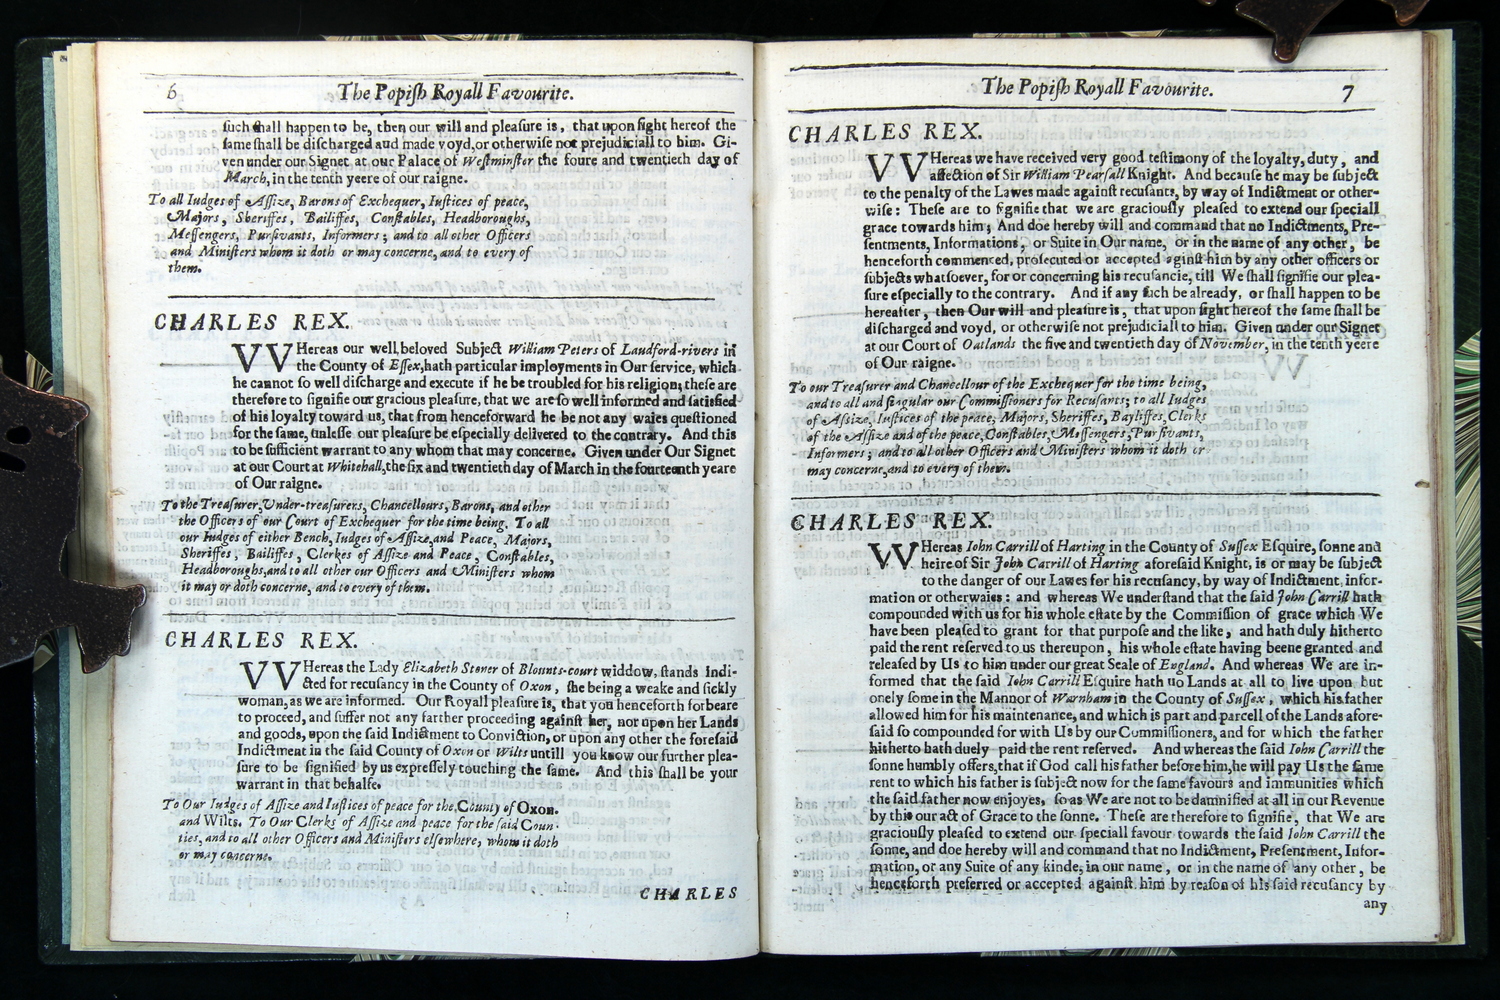 6
The Popiſh Royall Favourite.
ſuch ſhall happen to be, then our will and pleaſure is, that upon ſight hereof the
ſame ſhall be diſcharged aud made voyd, or otherwiſe not prejudiciall to him. Gi-
ven under our Signet at our Palace of Weſtminſter the foure and twentieth day of
March, in the tenth yeere of our raigne.
To all Iudges of Aſſize, Barons of Exchequer, Iuſtices of peace,
Majors, Sheriffes, Bailiffes, Conſtables, Headboroughs,
Meſſengers, Purſivants, Informers; and to all other Officers
and Miniſters whom it doth or may concerne, and to every of
them.
CHARLES REX.
VVHereas our well beloved Subject William Peters of Laudford-rivers in
the County of Eſſex, hath particular imployments in Our ſervice, which
he cannot ſo well diſcharge and execute if he be troubled for his religion; theſe are
therefore to ſignifie our gracious pleaſure, that we are ſo well informed and ſatisfied
of his loyalty toward us, that from henceforward he be not any waies queſtioned
for the ſame, unleſſe our pleaſure be eſpecially delivered to the contrary. And this
to be ſufficient warrant to any whom that may concerne. Given under Our Signet
at our Court at Whitehall, the ſix and twentieth day of March in the fourteenth yeare
of Our raigne.
To the Treaſurer, Under-treaſurers, Chancellours, Barons, and other
the Officers of our Court of Exchequer for the time being. To all
our Iudges of either Bench, Iudges of Aſſize, and Peace, Majors,
Sheriffes, Bailiffes, Clerkes of Aſſize and Peace, Conſtables,
Headboroughs, and to all other our Officers and Miniſters whom
it may or doth concerne, and to every of them.
CHARLES REX.
VVHereas the Lady Elizabeth Stoner of Blounts-court widdow, ſtands Indi-
cted for recuſancy in the County of Oxon, ſhe being a weake and ſickly
woman, as we are informed. Our Royall pleaſure is, that you henceforth forbeare
to proceed, and ſuffer not any farther proceeding againſt her, nor upon her Lands
and goods, upon the ſaid Indictment to Conviction, or upon any other the foreſaid
Indictment in the ſaid County of Oxon or Wilts untill you know our further plea-
ſure to be ſignified by us expreſſely touching the ſame. And this ſhall be your
warrant in that behalfe.
To Our Iudges of Aſſize and Iuſtices of peace for the County of Oxon.
and Wilts. To Our Clerks of Aſſize and peace for the ſaid Coun-
ties, and to all other Officers and Miniſters elſewhere, whom it doth
or may concerne.
CHARLES
The Popiſh Royall Favourite.
7
CHARLES REX.
VVHereas we have received very good teſtimony of the loyalty, duty, and
affection of Sir William Pearſall Knight. And becauſe he may be ſubject
to the penalty of the Lawes made againſt recuſants, by way of Indictment or other-
wiſe: Theſe are to ſignifie that we are graciouſly pleaſed to extend our ſpeciall
grace towards him; And doe hereby will and command that no Indictments, Pre-
ſentments, Informations, or Suite in Our name, or in the name of any other, be
henceforth commenced, proſecuted or accepted aginſt him by any other officers or
ſubjects whatſoever, for or concerning his recuſancie, till We ſhall ſignifie our plea-
ſure eſpecially to the contrary. And if any ſuch be already, or ſhall happen to be
hereafter, then Our will and pleaſure is, that upon ſight hereof the ſame ſhall be
diſcharged and voyd, or otherwiſe not prejudiciall to him. Given under our Signet
at our Court of Oatlands the five and twentieth day of November, in the tenth yeere
of Our raigne.
To our Treaſurer and Chancellour of the Exchequer for the time being,
and to all and ſingular our Commiſſioners for Recuſants; to all Iudges
of Aſsize, Iuſtices of the peace, Majors, Sheriffes, Bayliffes, Clerks
of the Aſſize and of the peace, Conſtables, Meſſengers, Purſivants,
Informers; and to all other Officers and Miniſters whom it doth or
may concerne, and to every of them.
CHARLES REX.
VVHereas Iohn Carrill of Harting in the County of Suſſex Eſquire, ſonne and
heire of Sir John Carrill of Harting aforeſaid Knight, is or may be ſubject
to the danger of our Lawes for his recuſancy, by way of Indictment, infor-
mation or otherwaies: and whereas We underſtand that the ſaid John Carrill hath
compounded with us for his whole eſtate by the Commiſſion of grace which We
have been pleaſed to grant for that purpoſe and the like, and hath duly hitherto
paid the rent reſerved to us thereupon, his whole eſtate having beene granted and
releaſed by Us to him under our great Seale of England. And whereas We are in-
formed that the ſaid Iohn Carrill Eſquire hath no Lands at all to live upon but
onely ſome in the Mannor of Warnham in the County of Suſſex, which his father
allowed him for his maintenance, and which is part and parcell of the Lands afore-
ſaid ſo compounded for with Us by our Commiſſioners, and for which the father
hitherto hath duely paid the rent reſerved. And whereas the ſaid Iohn Carrill the
ſonne humbly offers, that if God call his father before him, he will pay Us the ſame
rent to which his father is ſubject now for the ſame favours and immunities which
the ſaid father now enjoyes, ſo as We are not to be damnified at all in our Revenue
by this our act of Grace to the ſonne. Theſe are therefore to ſignifie, that We are
graciouſly pleaſed to extend our ſpeciall favour towards the ſaid Iohn Carrill the
ſonne, and doe hereby will and command that no Indictment, Preſentment, Infor-
mation, or any Suite of any kinde; in our name, or in the name of any other, be
henceforth preferred or accepted againſt him by reaſon of his ſaid recuſancy by
any